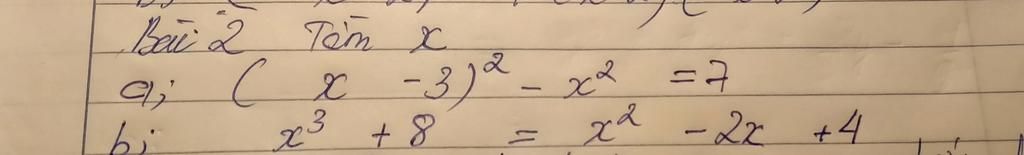 Bài 2 Tìm x
a; ( x - 3)² - x² = 7
b; x³ + 8 = x² - 2x + 4